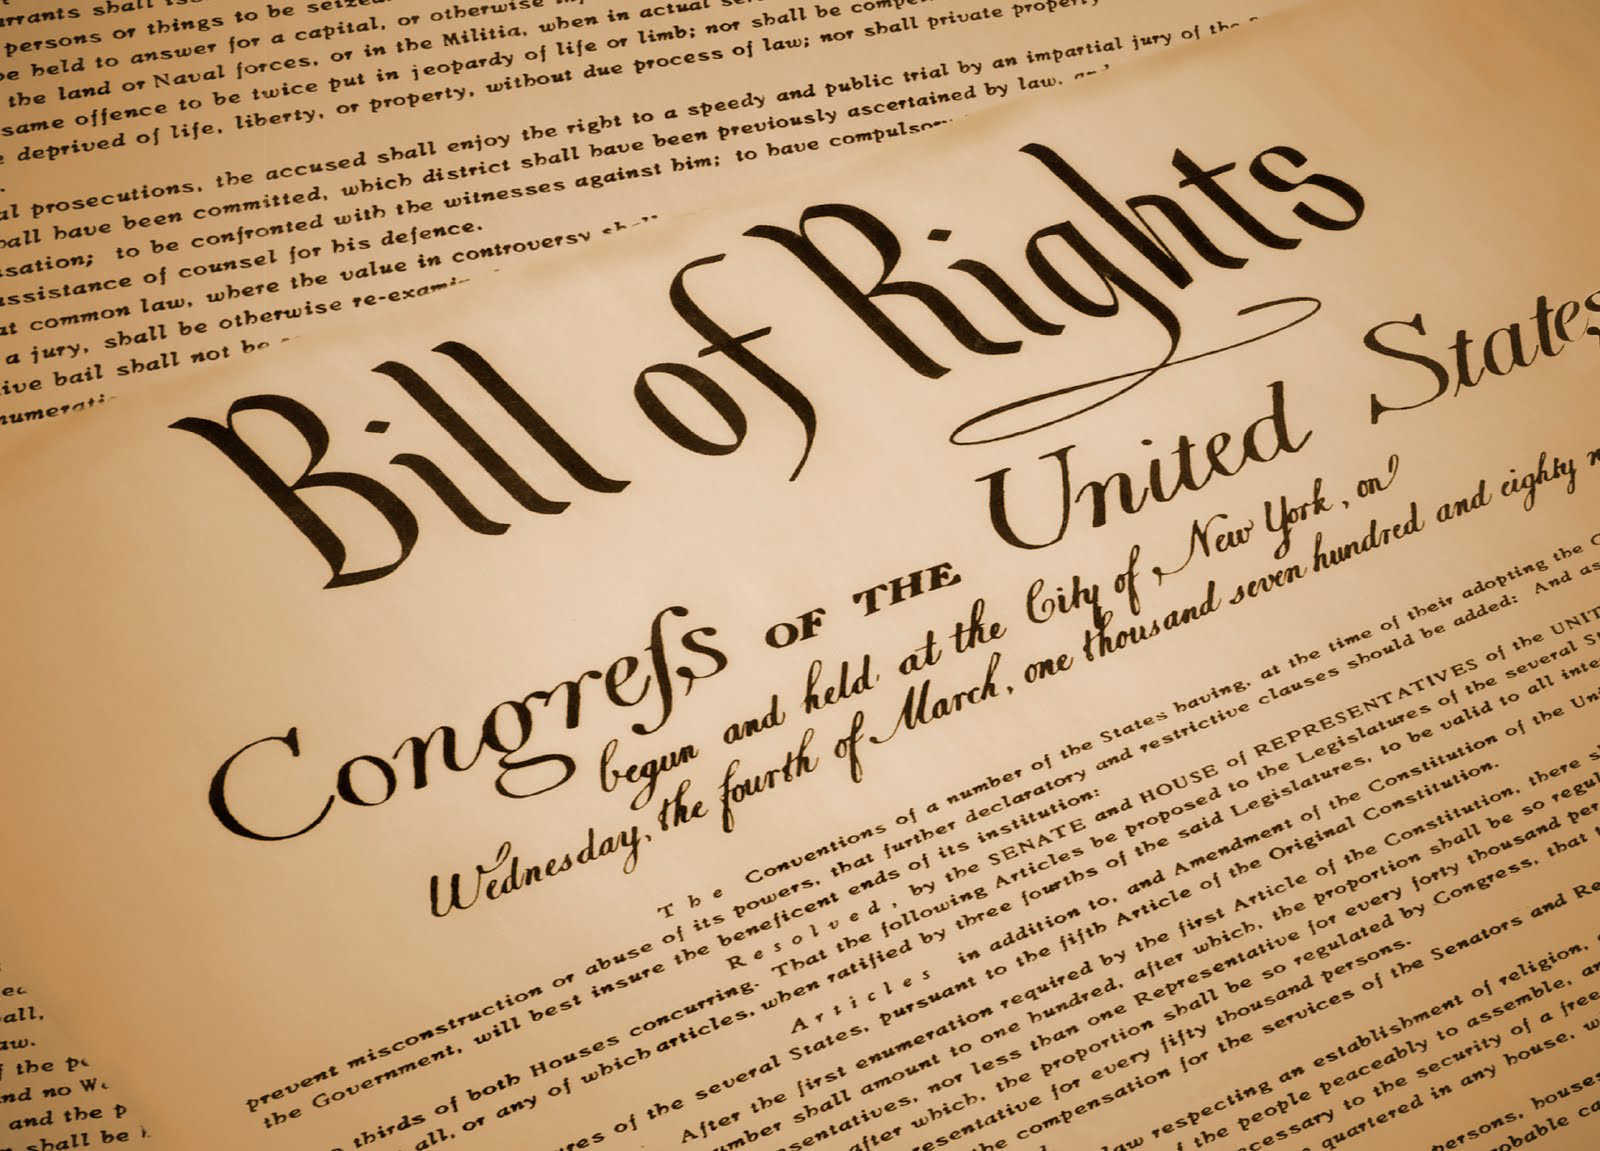 arrants shall
persons or things to be seized
be held to answer for a capital, or otherwise
the land or Naval forces, or in the Militia, when in actual
same offence to be twice put in jeopardy of life or limb; nor shall be
deprived of life, liberty, or property, without due process of law; nor shall private property
al prosecutions, the accused shall enjoy the right to a speedy and public trial by an impartial jury of the
hall have been committed, which district shall have been previously ascertained by law, and
sation; to be confronted with the witnesses against him; to have compulsory
assistance of counsel for his defence.
at common law, where the value in controversy shall
a jury, shall be otherwise re-exami
ive bail shall not be
numerati
Bill of Rights
Congreſs OF THE United States
begun and held at the City of New York, on
Wednesday, the fourth of March, one thousand seven hundred and eighty n
The Conventions of a number of the States having, at the time of their adopting the C
prevent misconstruction or abuse of its powers, that further declaratory and restrictive clauses should be added: And as
the Government, will best insure the beneficent ends of its institution:
Resolved, by the SENATE and HOUSE of REPRESENTATIVES of the UNIT
thirds of both Houses concurring. That the following Articles be proposed to the Legislatures of the several S
all, or any of which articles, when ratified by three fourths of the said Legislatures, to be valid to all inte
Articles in addition to, and Amendment of the Constitution of the Uni
res of the several States, pursuant to the fifth Article of the Original Constitution.
After the first enumeration required by the first Article of the Constitution, there s
umber shall amount to one hundred, after which, the proportion shall be so regul
sentatives, nor less than one Representative for every forty thousand per
after which, the proportion shall be so regulated by Congress, that t
resentative for every fifty thousand persons.
the compensation for the services of the Senators and Re
law respecting an establishment of religion,
f the people peaceably to assemble, an
cessary to the security of a free
quartered in any house, w
ersons, houses
robable ca
all,
aw.
f the pe
nd no
and the p
shall be